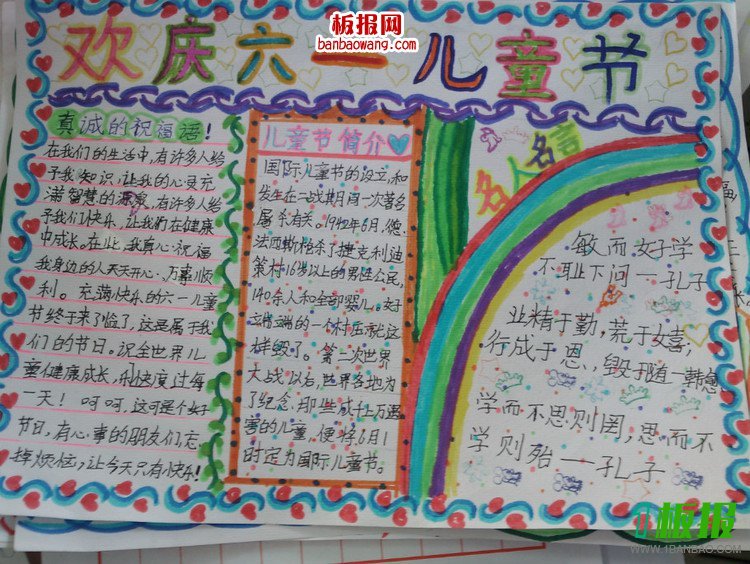 板报网
banbaowang.com
欢庆六一儿童节
真诚的祝福语！
在我们的生活中,有许多人给
予我知识,让我的心灵充
满智慧的源泉,有许多人给
予我们快乐,让我们在健康
中成长。在此,我真心祝福
我身边的人天天开心,万事顺
利。充满快乐的六一儿童
节终于来了临了,这是属于我
们的节日。祝全世界儿
童健康成长,快度过每
一天！呵呵,这可是个好
节日,有心事的朋友们,忘
掉烦恼,让今天只有快乐!
儿童节简介
国际儿童节的设立,和
发生在二战期间一次著名
屠杀有关。1942年6月,德
法西斯枪杀了捷克利迪
策村16岁以上的男性公民,
140余人和全部婴儿。好
端端的一个村庄就这
样毁了。第二次世界
大战以后,世界各地为
了纪念,那些成千上万遇
害的儿童,便将6月1
日定为国际儿童节。
名人名言
敏而好学
不耻下问一孔子
业精于勤,荒于女喜,
行成于思,,毁于随一韩愈
学而不思则困,思而不
学则殆一孔子
板报
WWW.1BANBAO.COM